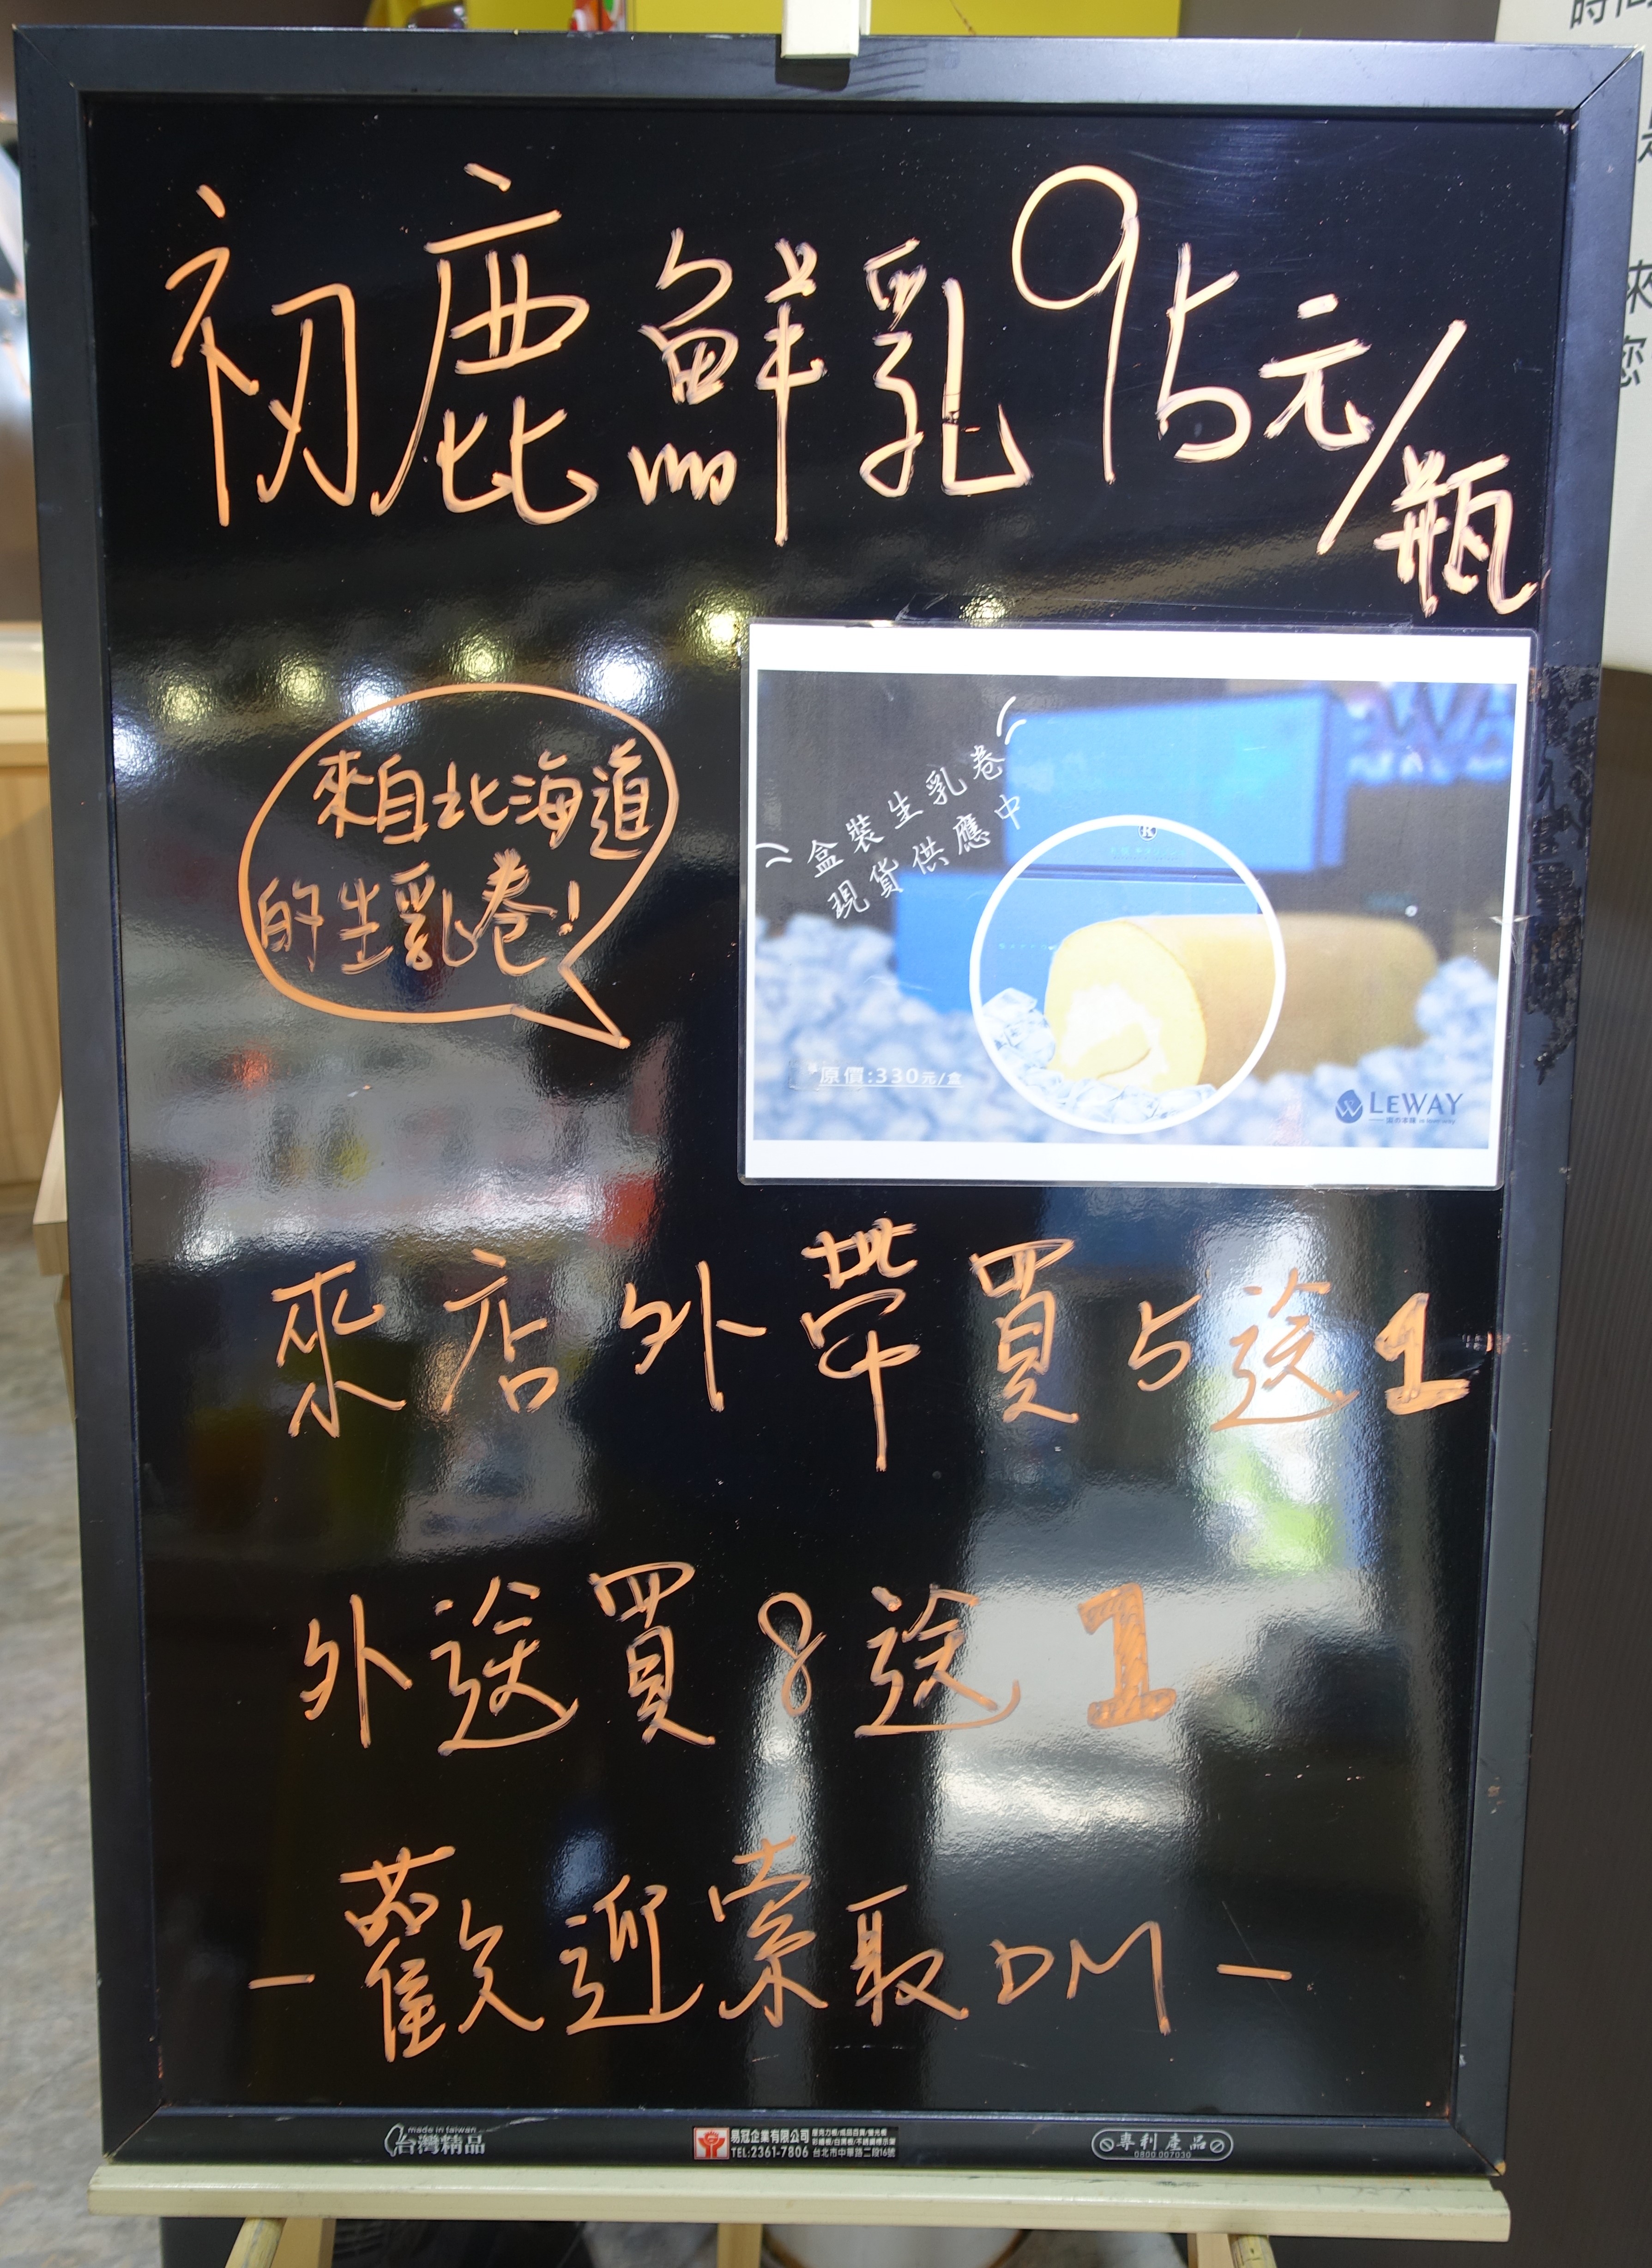 初鹿鮮乳95元/瓶
來自北海道
的生乳卷!
盒裝生乳卷
現貨供應中
原價:330元/盒
LEWAY
來店外帶買5送1
外送買8送1
- 歡迎索取DM -
made in taiwan
台灣精品
易冠企業有限公司
TEL:2361-7806 台北市中華路二段16號
專利產品
0800.007030
時間
來
您